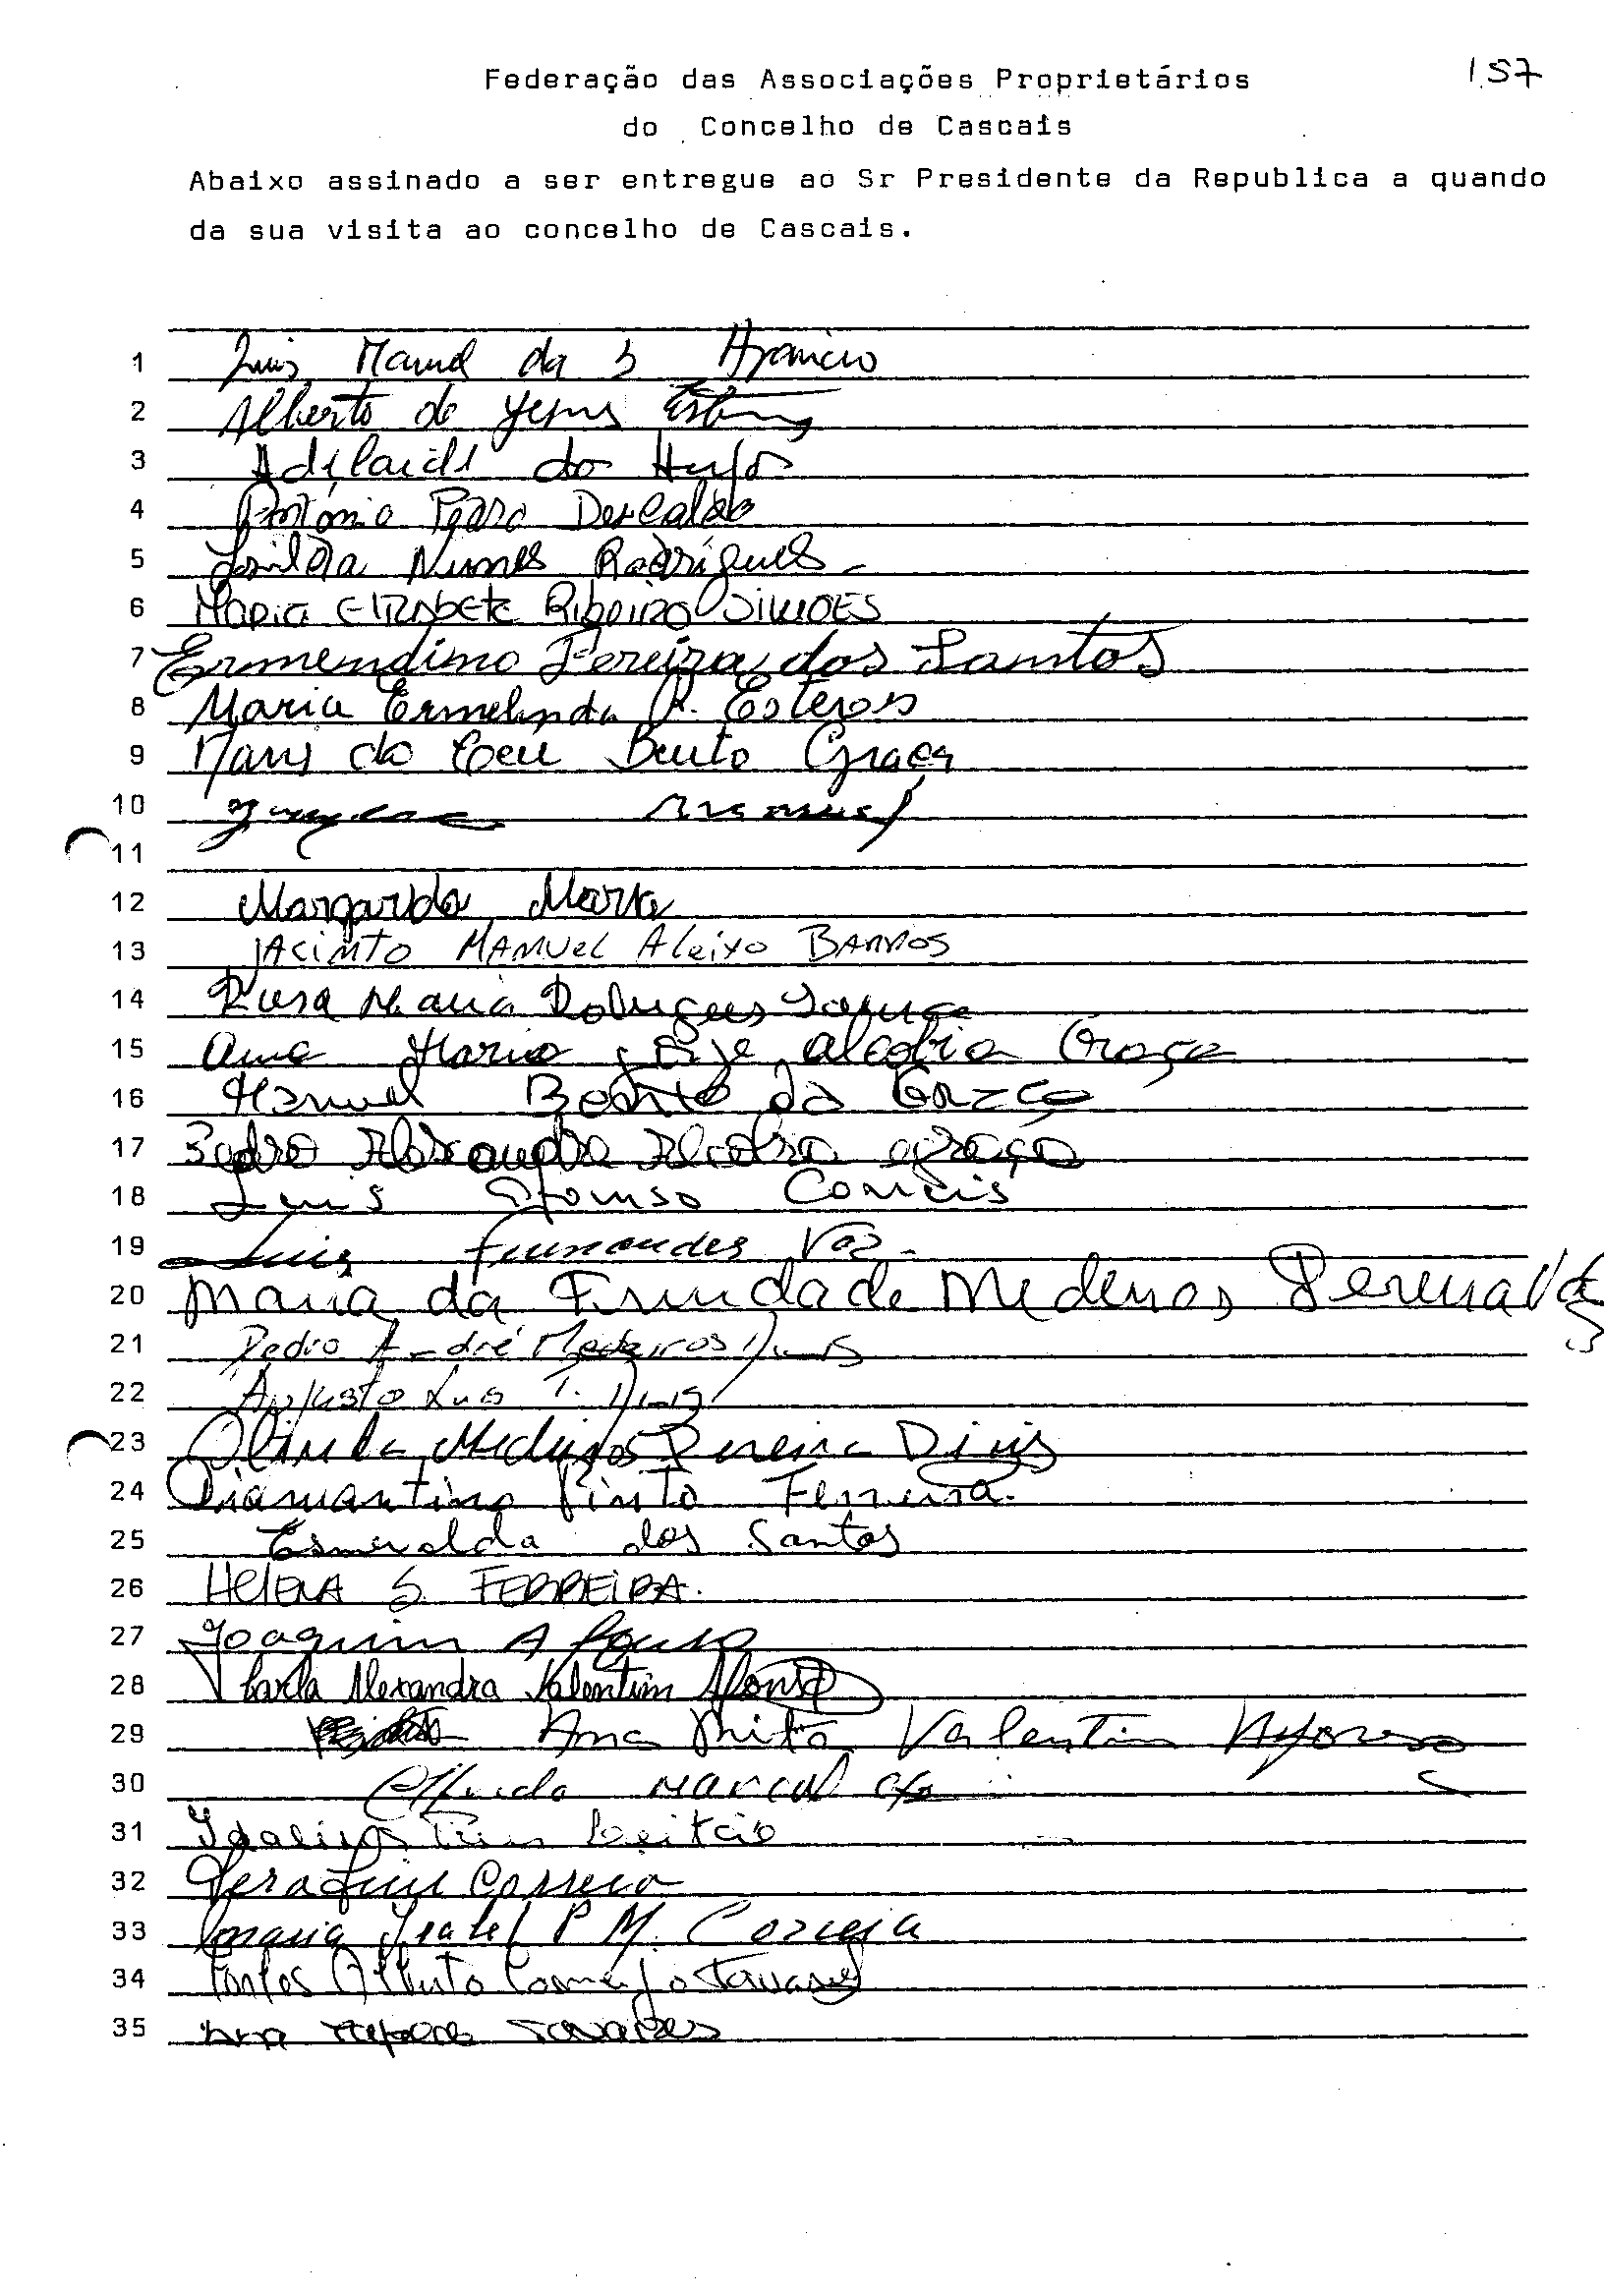 157
Federação das Associações Proprietários
do Concelho de Cascais
Abaixo assinado a ser entregue ao Sr Presidente da Republica a quando
da sua visita ao concelho de Cascais.
1 Luis Manuel da S
2 Alberto de Jesus
3 Adilaide do
4 António
5 Nunes Rodrigues
6 MARIA ELIZABETE RIBEIRO SIMOES
7 Ermendino Pereira dos Santos
8 Maria Ermelinda R. Esteves
9 Maria do Ceu Bento Graça
10 Manuel
11
12 Margarida Marta
13 JACINTO MANUEL Aleixo BARROS
14 Rosa Maria Rodrigues
15 Ana Maria alcobia Graça
16 Manuel Bento da Graça
17 Pedro Alexandre Alcobia graça
18 Luis Afonso
19 Luis Fernandes Vaz
20 Maria da Trindade Medeiros Pereira
21 Pedro André Medeiros
22 Augusto Luis T.
23 Olinda Medeiros Pereira Dinis
24 Diamantino Pinto Ferreira.
25 Esmeralda dos Santos
26 HELENA S. FERREIRA.
27 Joaquim Afonso
28 Carla Alexandra Valentim Afonso
29 Ana Rita Valentim Afonso
30
31 Leitão
32 Serafim Correia
33 Maria Isabel P M. Correia
34 Carlos Alberto Tavares
35 Tavares